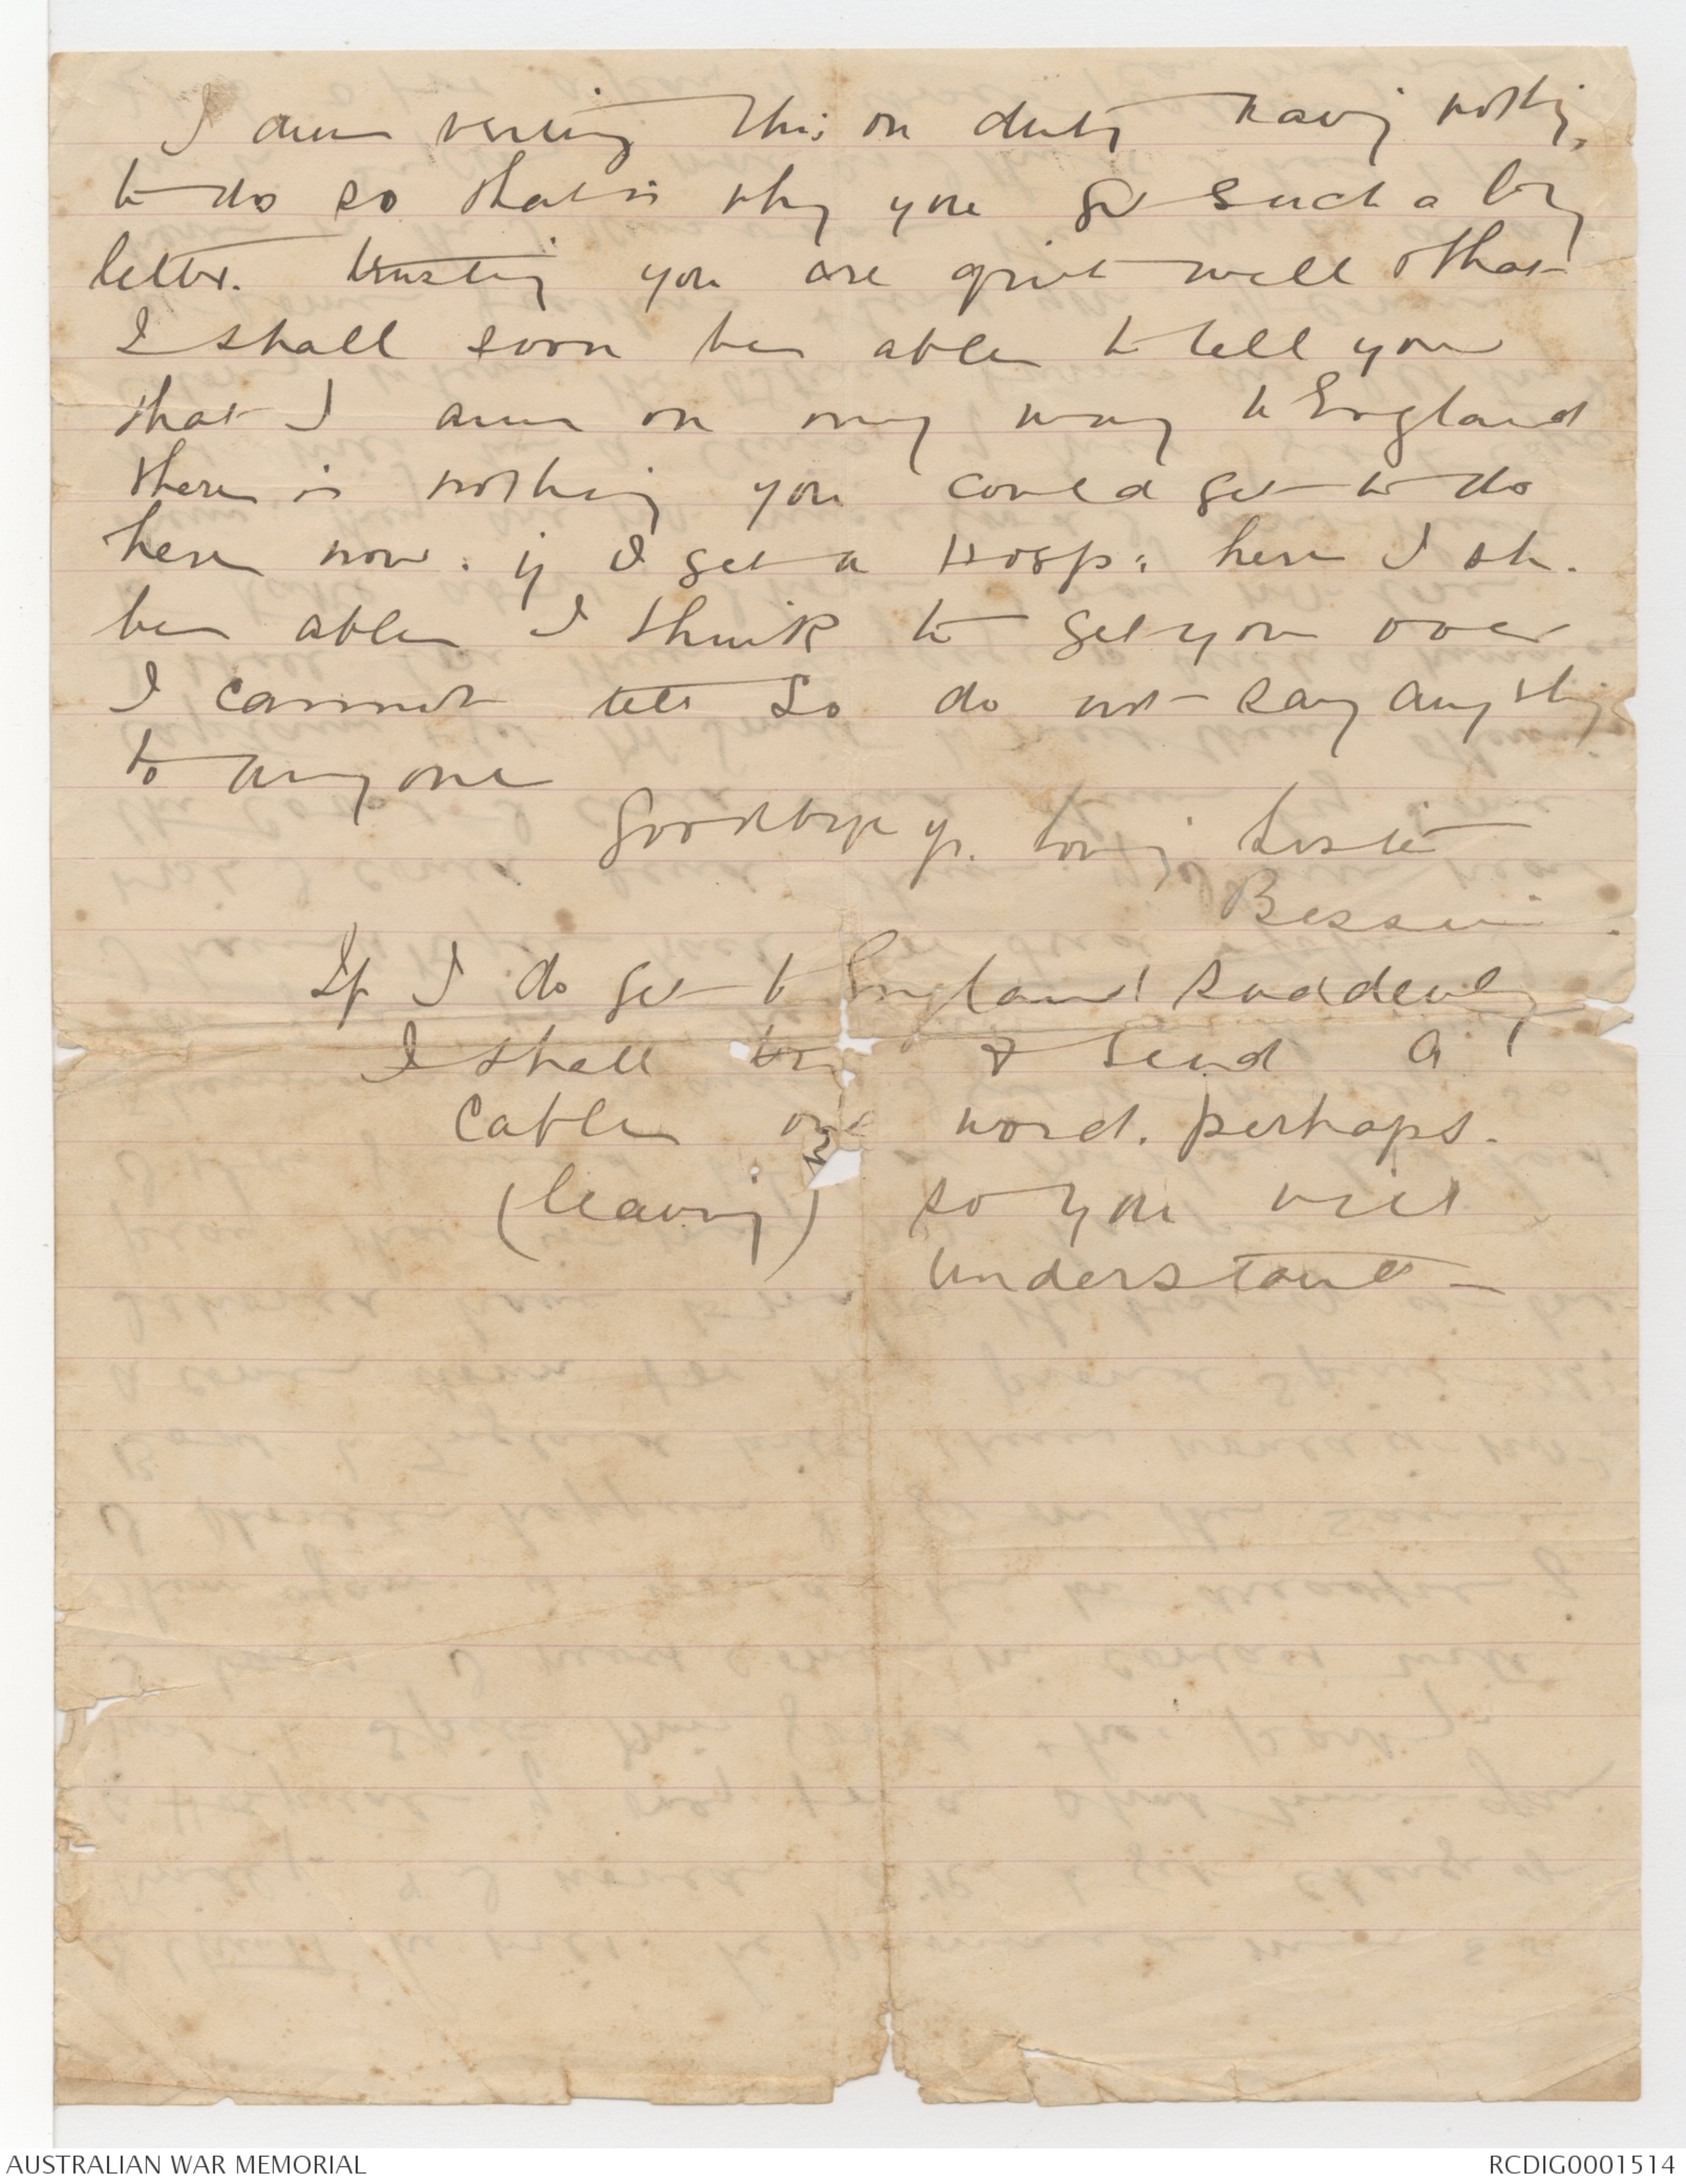 I am writing this on duty having nothing
to do so that is why you get such a long
letter. trusting you are quite well & that
I shall soon be able to tell you
that I am on my way to England
there is nothing you could get to do
here now. if I get a Hosp: here I sh.
be able I think to get you over
I cannot tell so do not say anything
to anyone
Goodbye yr. loving Sister
Bessie.
If I do get to England suddenly
I shall try & send a
cable one word. perhaps.
(leaving) so you will
understand -
AUSTRALIAN WAR MEMORIAL
RCDIG0001514